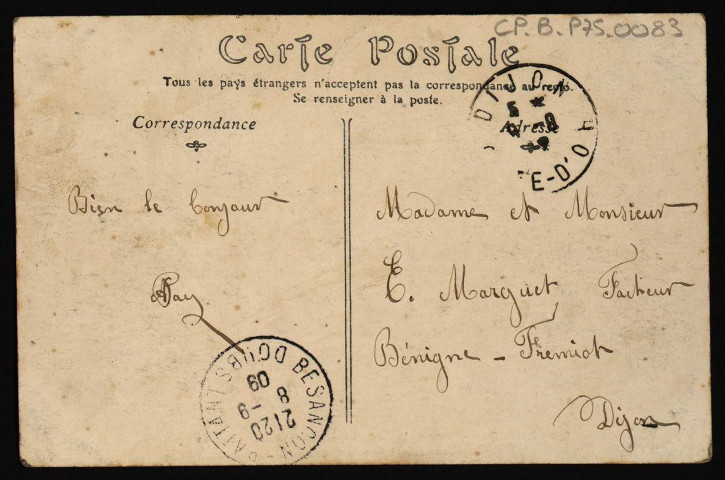 CP.B.P75.0083
Carte Postale
Tous les pays étrangers n'acceptent pas la correspondance au recto.
Se renseigner à la poste.
Correspondance
Bien le bonjour
BESANÇON-BATTANT DOUBS
2120
8 -9
09
Adresse
DIJON
E-D'OR
Madame et Monsieur
E. Marguet Facteur
Bénigne - Fremiot
Dijon